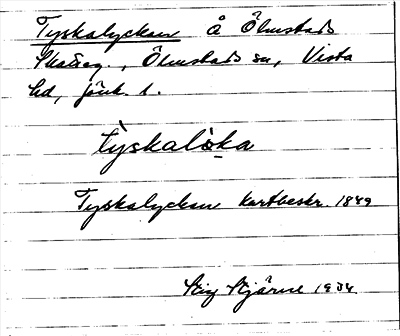 Tyskalyckan å Ölmstads
Skatteg., Ölmstads sn, Vista
hd, Jönk. l.
Tyskalyckan kartbeskr. 1849
Stig Stjärne 1934